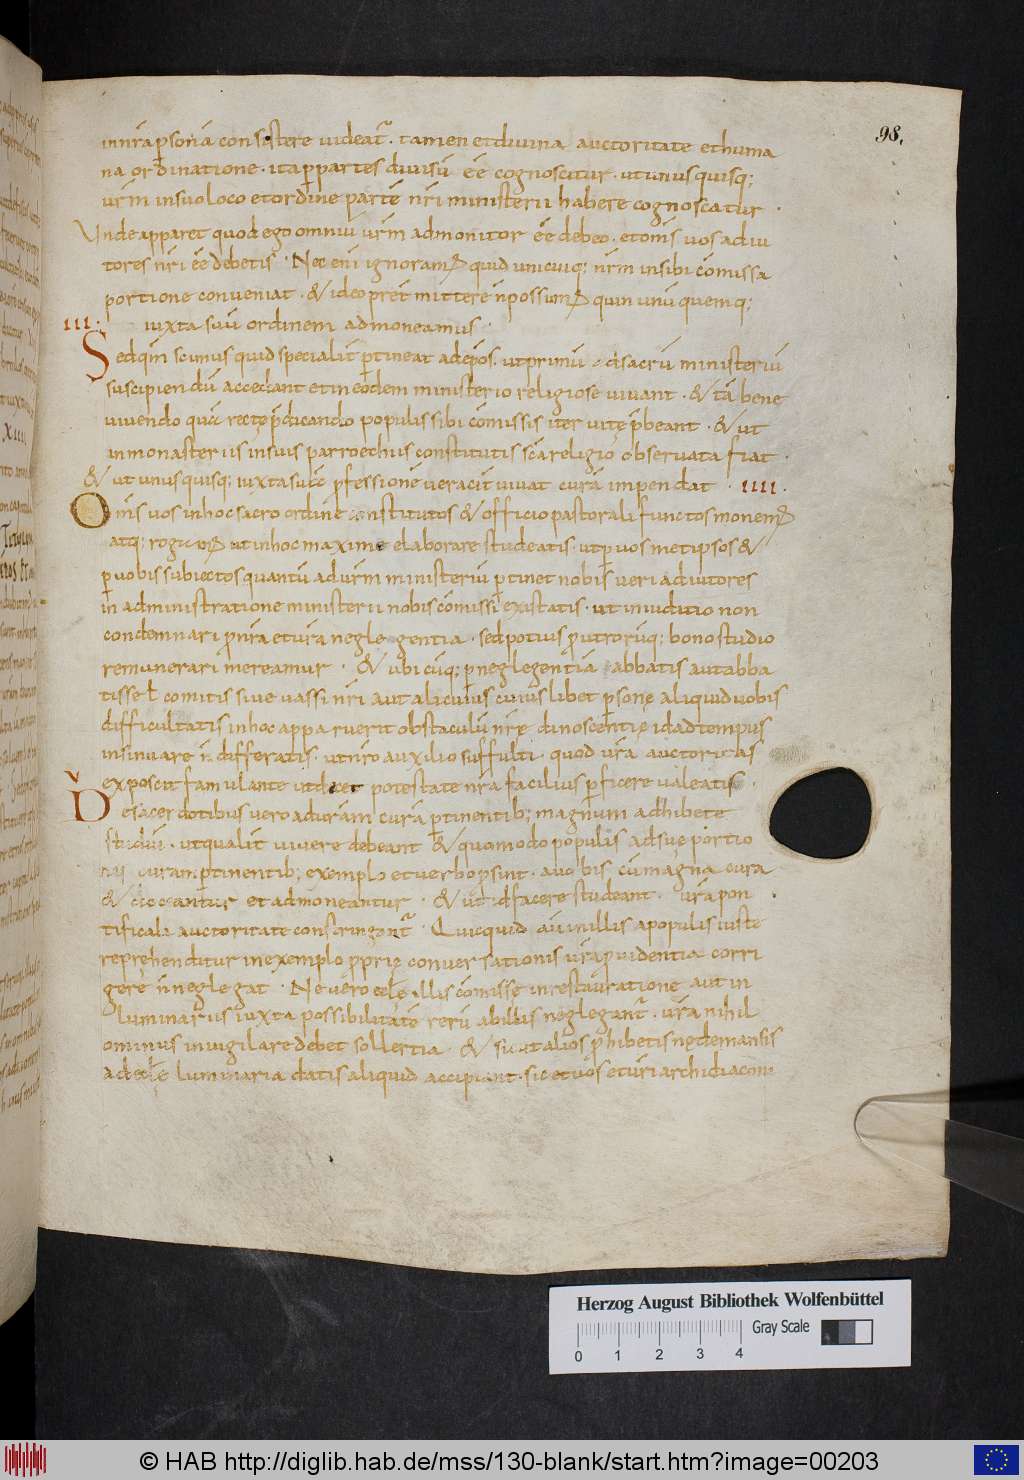 98.
in nr̄a psona consistere videat̄. tamen et divina auctoritate et huma
na ordinatione. ita p partes divisū ēe cognoscitur. ut unusquisq;
vr̄m in suo loco et ordine partē nr̄i ministerii habere cognoscatur.
Unde apparet quod ego omniū vr̄m admonitor ēe debeo. et om̄s vos adiu
tores nr̄i ēe debetis. Nec eni ignoram; quid unicuiq; nr̄m in sibi cōmissa
portione conveniat. & ideo pret mittere n̄ possum; quin unū quemq;
III. iuxta suū ordinem admoneamus.
Sed qm̄ scimus quid specialit̄ ptineat ad ep̄os. ut primū ad sacrū ministeriū
suscipiendū accedant et in eodem ministerio religiose vivant. & tā bene
vivendo quā recte p̄dicando populis sibi cōmissis iter vitę p̄beant. & ut
in monasteriis in suis parroechiis constitutis sc̄a religio observata fiat.
& ut unusquisq; iuxta suā pfessionē veracit̄ vivat curā impendat. IIII.
Om̄s vos in hoc sacro ordine constitutos & officio pastorali functos monem;
atq; rogam; ut in hoc maxime elaborare studeatis. ut p vos metipsos &
p vobis subiectos quantū ad vr̄m ministeriū ptinet nobis veri adiutores
in administratione ministerii nobis cōmissi existatis. ut in iuditio non
condemnari p nr̄a et vr̄a neglegentia. sed potius p utrorūq; bono studio
remunerari mereamur. & ubicūq; p neglegentiā abbatis aut abba
tisse ł comitis sive vassi nr̄i aut alicuius cuiuslibet psonę aliquid vobis
difficultatis in hoc apparuerit obstaculū nr̄ę dinoscentię id ad tempus
insinuare n̄ differatis. ut nr̄o auxilio suffulti. quod vr̄a auctoritas
exposcit famulante ut decet potestate nr̄a facilius pficere valeatis.
De sacerdotibus vero ad vr̄am curā ptinentib; magnum adhibete
studiū. ut qualit̄ vivere debeant & quomodo populis ad suę portio
nis curam ptinentib; exemplo et verbo psint. a vobis cū magna cura
& doceantur et admoneantur. & ut id facere studeant. vr̄a pon
tificali auctoritate constringant̄. Quicquid aū in illis a populis iuste
reprehenditur in exemplo pprię conversationis vr̄a pvidentia corri
gere n̄ neglegat. Ne vero ecl̄ę illis cōmissę in restauratione aut in
luminariis iuxta possibilitatē rerū ab illis neglegant̄. vr̄a nihil
ominus invigilare debet sollertia. & sicut alios phibetis ne de mansis
ad ecl̄ę luminaria datis aliquid accipiant. sic et vos et vr̄i archidiaconi
Herzog August Bibliothek Wolfenbüttel
Gray Scale
0 1 2 3 4
© HAB http://diglib.hab.de/mss/130-blank/start.htm?image=00203